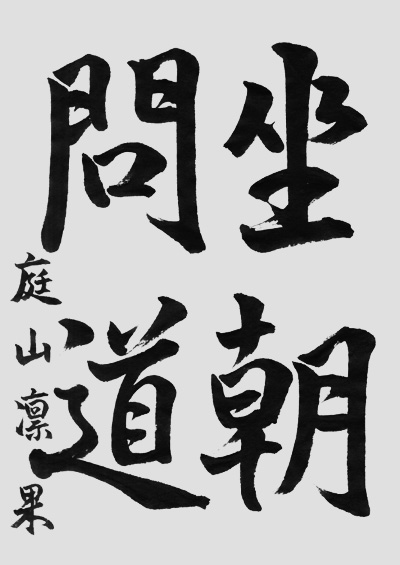 坐朝
問道
庭山凛果